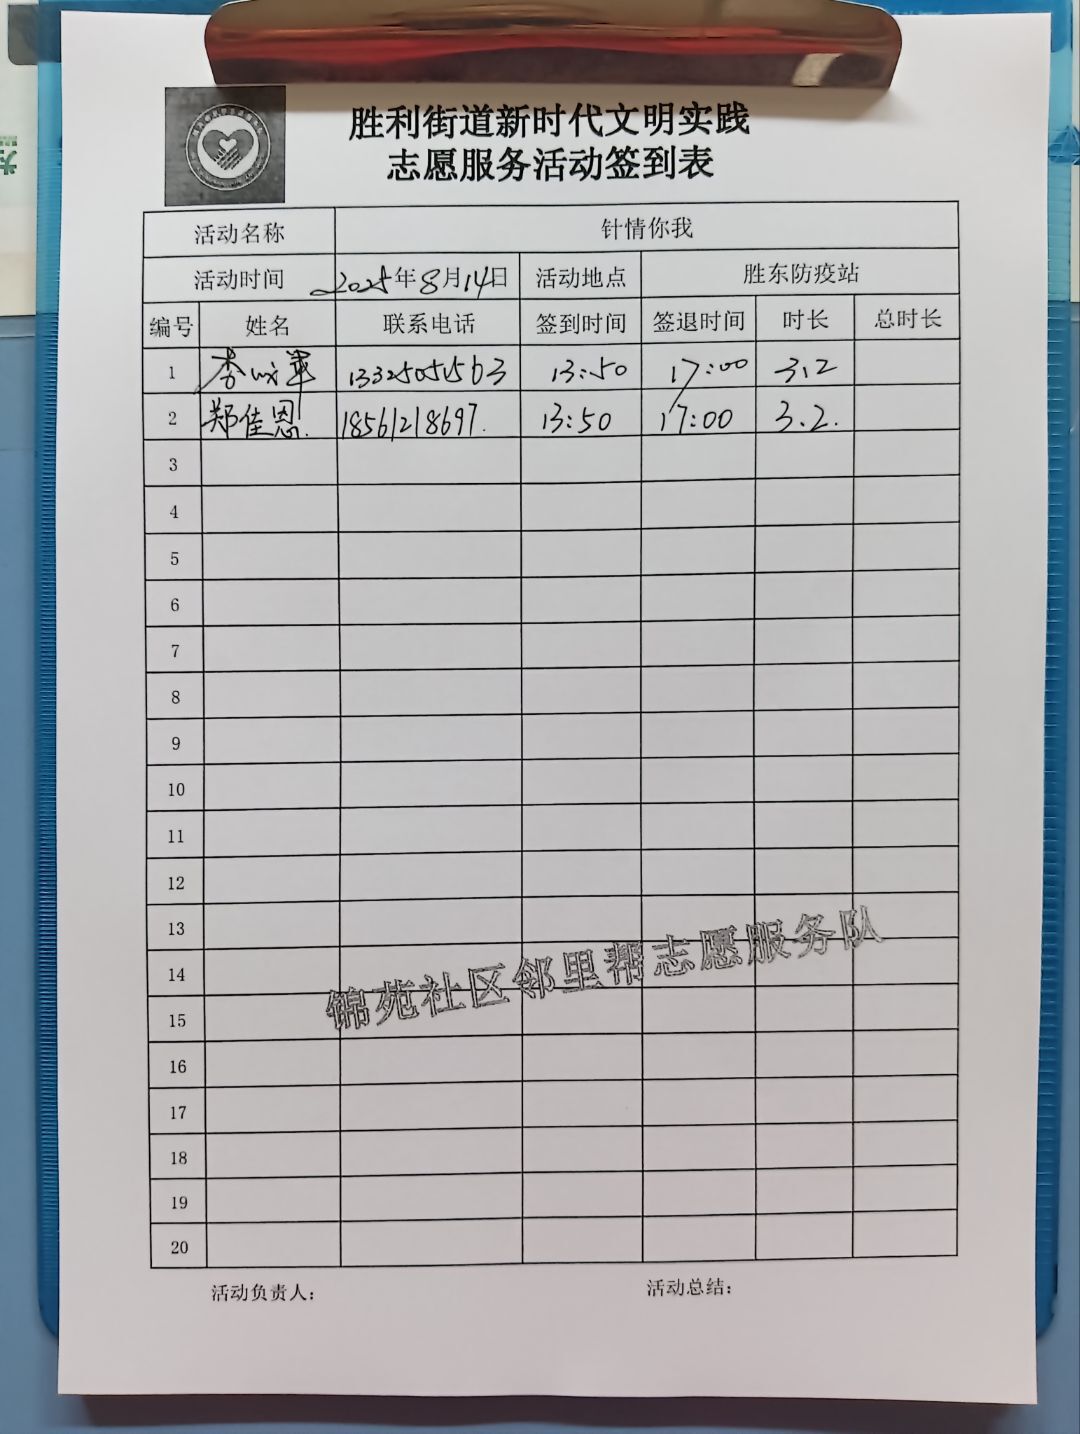 胜利街道新时代文明实践
志愿服务活动签到表
活动名称 针情你我
活动时间 2025年8月14日 活动地点 胜东防疫站
编号 姓名 联系电话 签到时间 签退时间 时长 总时长
1 李 13325051563 13:50 17:00 3.2
2 郑佳恩. 18561218697. 13:50 17:00 3.2.
3
4
5
6
7
8
9
10
11
12
13
14
15
16
17
18
19
20
锦苑社区邻里帮志愿服务队
活动负责人: 活动总结: